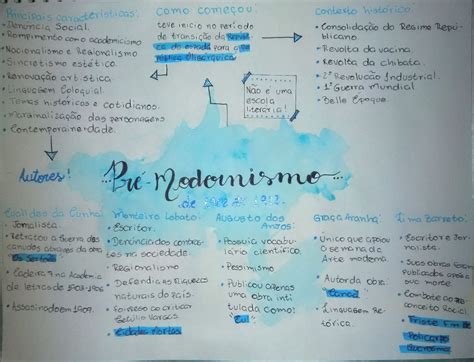 Principais características:
• Denúncia Social.
• Rompimento com o academicismo
• Nacionalismo e Regionalismo
• Sincretismo estético.
• Renovação artística
• Linguagem Coloquial.
• Temas históricos e cotidianos.
• Marginalização das personagens
• Contemporaneidade.
Como começou:
teve início no período
de transição da
para a
República Oligárquica
Não é uma
escola
literária!
contexto histórico:
• Consolidação do Regime Repu-
blicano.
• Revolta da vacina
• Revolta da chibata.
• 2ª Revolução Industrial.
• 1ª Guerra Mundial
• Belle Époque.
Autores!
Pré-Modernismo
de 1912.
Euclides da Cunha:
• Jornalista.
• Retratou a Guerra dos
canudos através da obra
Os Sertões
• Cadeira 7 na Academia
de letras de 1903-1909.
• Assassinado em 1909.
Monteiro Lobato:
• Escritor.
• Denunciados contras-
tes na sociedade.
• Regionalismo
• Defendia as riquezas
naturais do país.
• Foi preso ao criticar
Getúlio Vargas.
• Cidades Mortas
Augusto dos
Anjos:
• Possuia vocabu-
lário científico.
• Pessimismo
• Publicou apenas
uma obra inti
tulada como:
Eu
Graça Aranha:
• Único que apoiou
a semana da
Arte moderna
• Autor da obra
Canaã
• Linguagem Re-
tórica.
Lima Barreto:
• Escritor e Jor-
nalista.
• Suas obras foram
Publicadas após a
sua morte.
• Combate ao precon-
ceito Racial.
• Triste Fim de
Policarpo
Quaresma